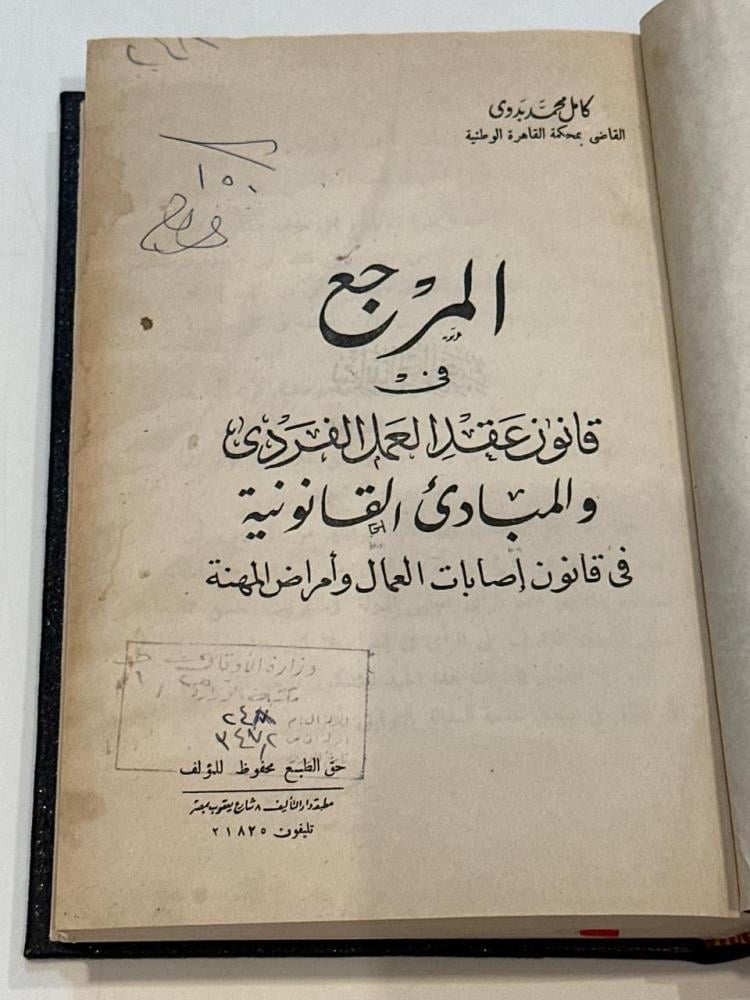 كامل محمد بدوى
القاضى بمحكمة القاهرة الوطنية
١٥٠
المرجع
فى
قانون عقد العمل الفردى
والمبادئ القانونية
فى قانون إصابات العمال وأمراض المهنة
وزارة الأوقاف
مكتبة الوزارة
٣٤٧٢
حق الطبع محفوظ للمؤلف
مطبعة دار التأليف ٨ شارع يعقوب بمصر
تليفون ٢١٨٢٥